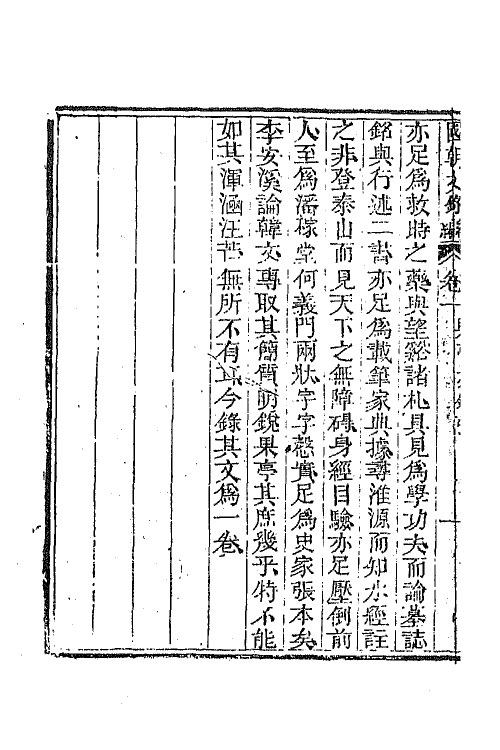 國朝文錄續編 卷一
亦足為救時之藥與望谿諸札具見為學功夫而論墓誌
銘與行述二書亦足為載筆家典據尋淮源而知水經註
之非登泰山而見天下之無障礙身經目驗亦足壓倒前
人至為潘稼堂何義門兩狀字字慤實足為史家張本矣
李安溪論韓文專取其簡質明銳果亭其庶幾乎特不能
如其渾涵汪茫無所不有耳今錄其文為一卷